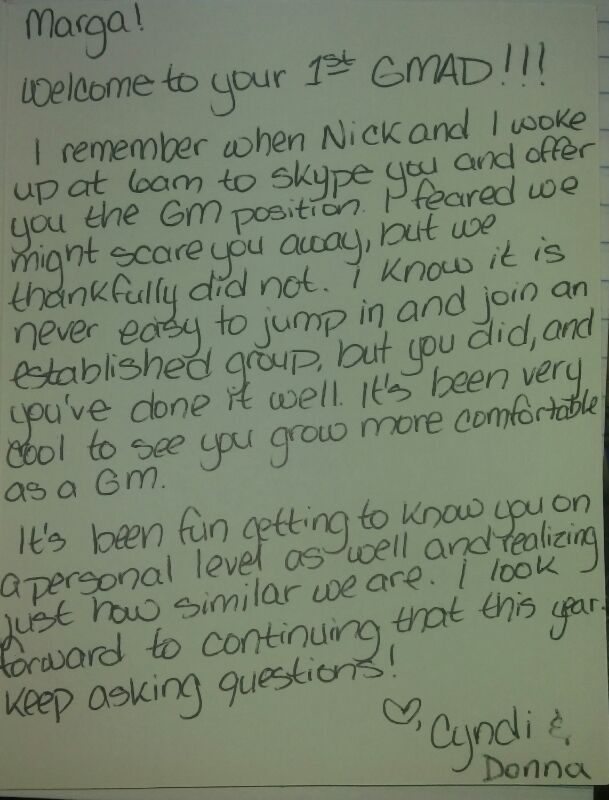 Marga!
Welcome to your 1st GMAD!!!
I remember when Nick and I woke
up at 6am to skype you and offer
you the GM position. I feared we
might scare you away, but we
thankfully did not. I know it is
never easy to jump in and join an
established group, but you did, and
you've done it well. It's been very
cool to see you grow more comfortable
as a GM.
It's been fun getting to know you on
a personal level as well and realizing
just how similar we are. I look
forward to continuing that this year.
Keep asking questions!
♡, Cyndi &
Donna